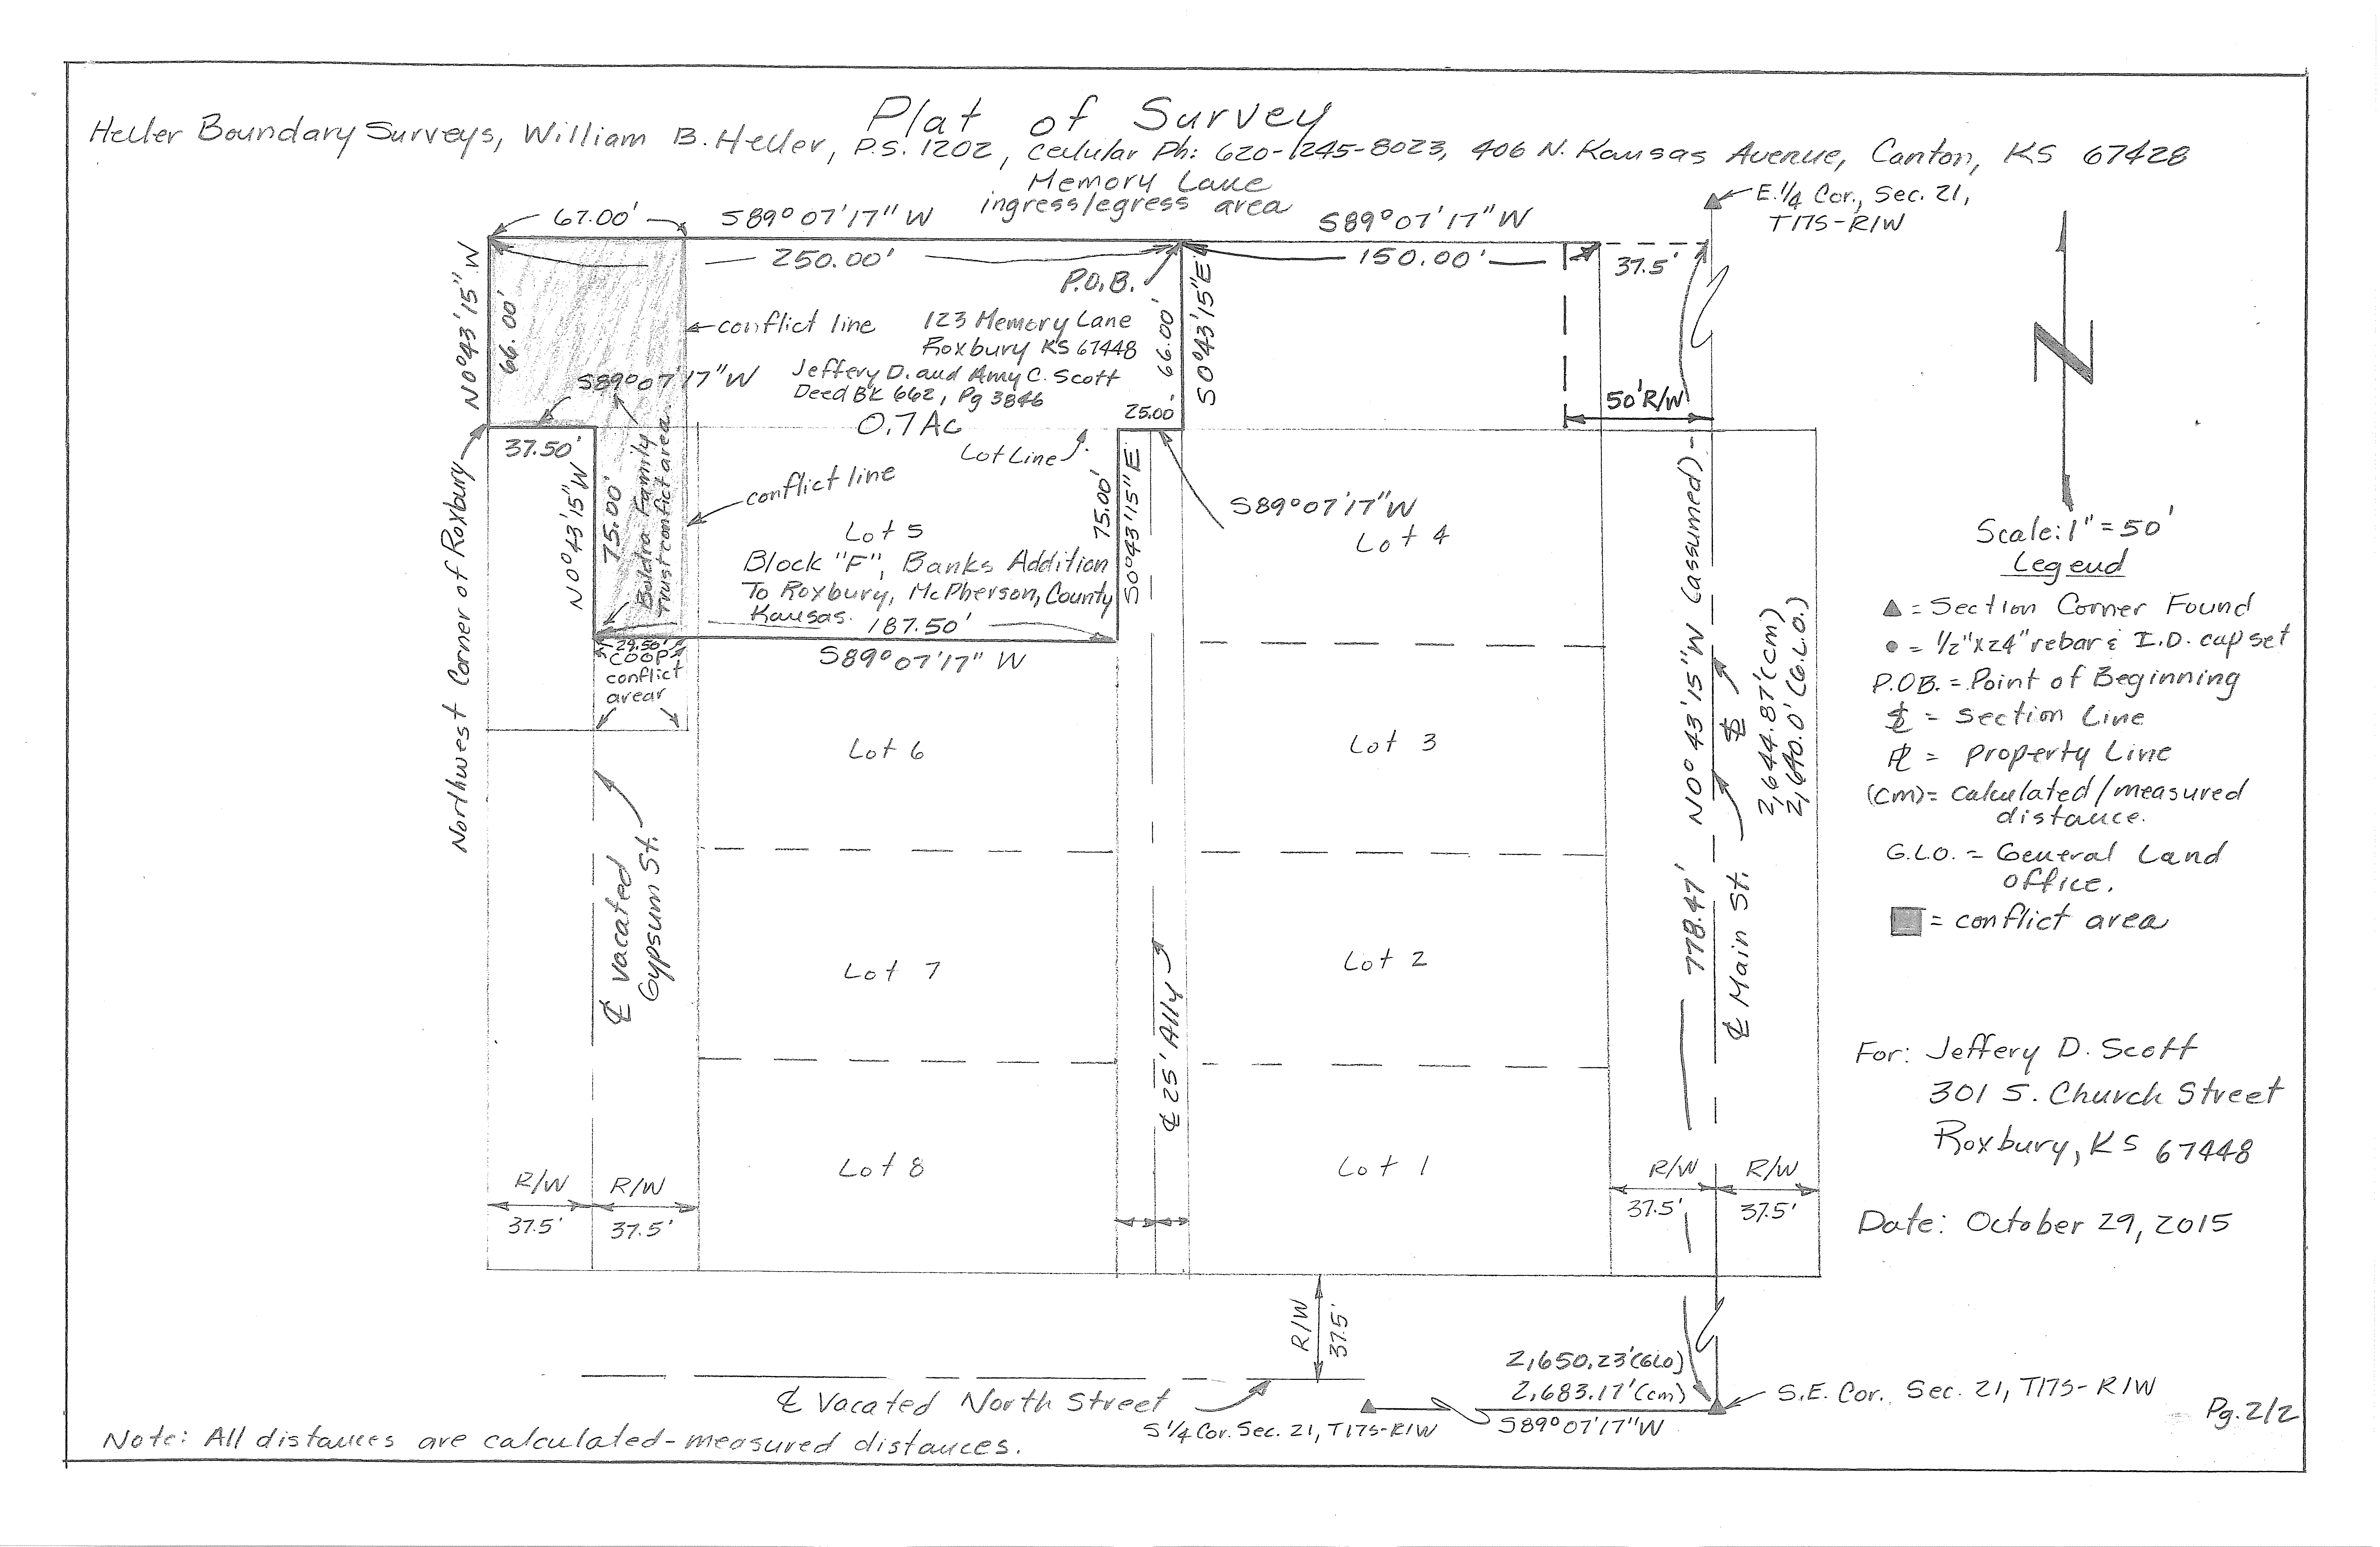 Plat of Survey
Heller Boundary Surveys, William B. Heller, P.S. 1202, Cellular Ph: 620-245-8023, 406 N. Kansas Avenue, Canton, KS 67428
Memory Lane
ingress/egress area
E. 1/4 Cor., Sec. 21,
T17S-R1W
67.00'
S89°07'17"W
S89°07'17"W
250.00'
150.00'
37.5'
P.O.B.
N0°43'15"W
66.00'
conflict line
123 Memory Lane
Roxbury KS 67448
Jeffery D. and Amy C. Scott
Deed Bk 662, Pg 3846
0.7 Ac
66.00'
S0°43'15"E
25.00'
50' R/W
S89°07'17"W
37.50'
Lot Line
conflict line
N0°43'15"W
75.00'
Boldra Family
Trust conflict area
75.00'
S0°43'15"E
S89°07'17"W
Lot 4
Lot 5
Block "F", Banks Addition
To Roxbury, McPherson, County
Kansas.
187.50'
S89°07'17"W
29.50'
COOP
conflict
area
Northwest Corner of Roxbury
Lot 6
Lot 3
Lot 7
Lot 2
Lot 8
Lot 1
℄ Vacated
Gypsum St.
℄ 25' Ally
778.47'
N0°43'15"W (assumed)
℄ Main St.
2,644.87'(cm)
2,640.0'(G.L.O.)
R/W
37.5'
R/W
37.5'
R/W
37.5'
R/W
37.5'
R/W
37.5'
N
Scale: 1" = 50'
Legend
▲ = Section Corner Found
● = 1/2"x24" rebar & I.D. cap set
P.O.B. = Point of Beginning
= Section Line
= Property Line
(cm) = calculated/measured
distance.
G.L.O. = General Land
Office.
■ = conflict area
For: Jeffery D. Scott
301 S. Church Street
Roxbury, KS 67448
Date: October 29, 2015
℄ Vacated North Street
S 1/4 Cor. Sec. 21, T17S-R1W
2,650.23'(GLO)
2,683.17'(cm)
S89°07'17"W
S.E. Cor. Sec. 21, T17S-R1W
Pg. 2/2
Note: All distances are calculated-measured distances.